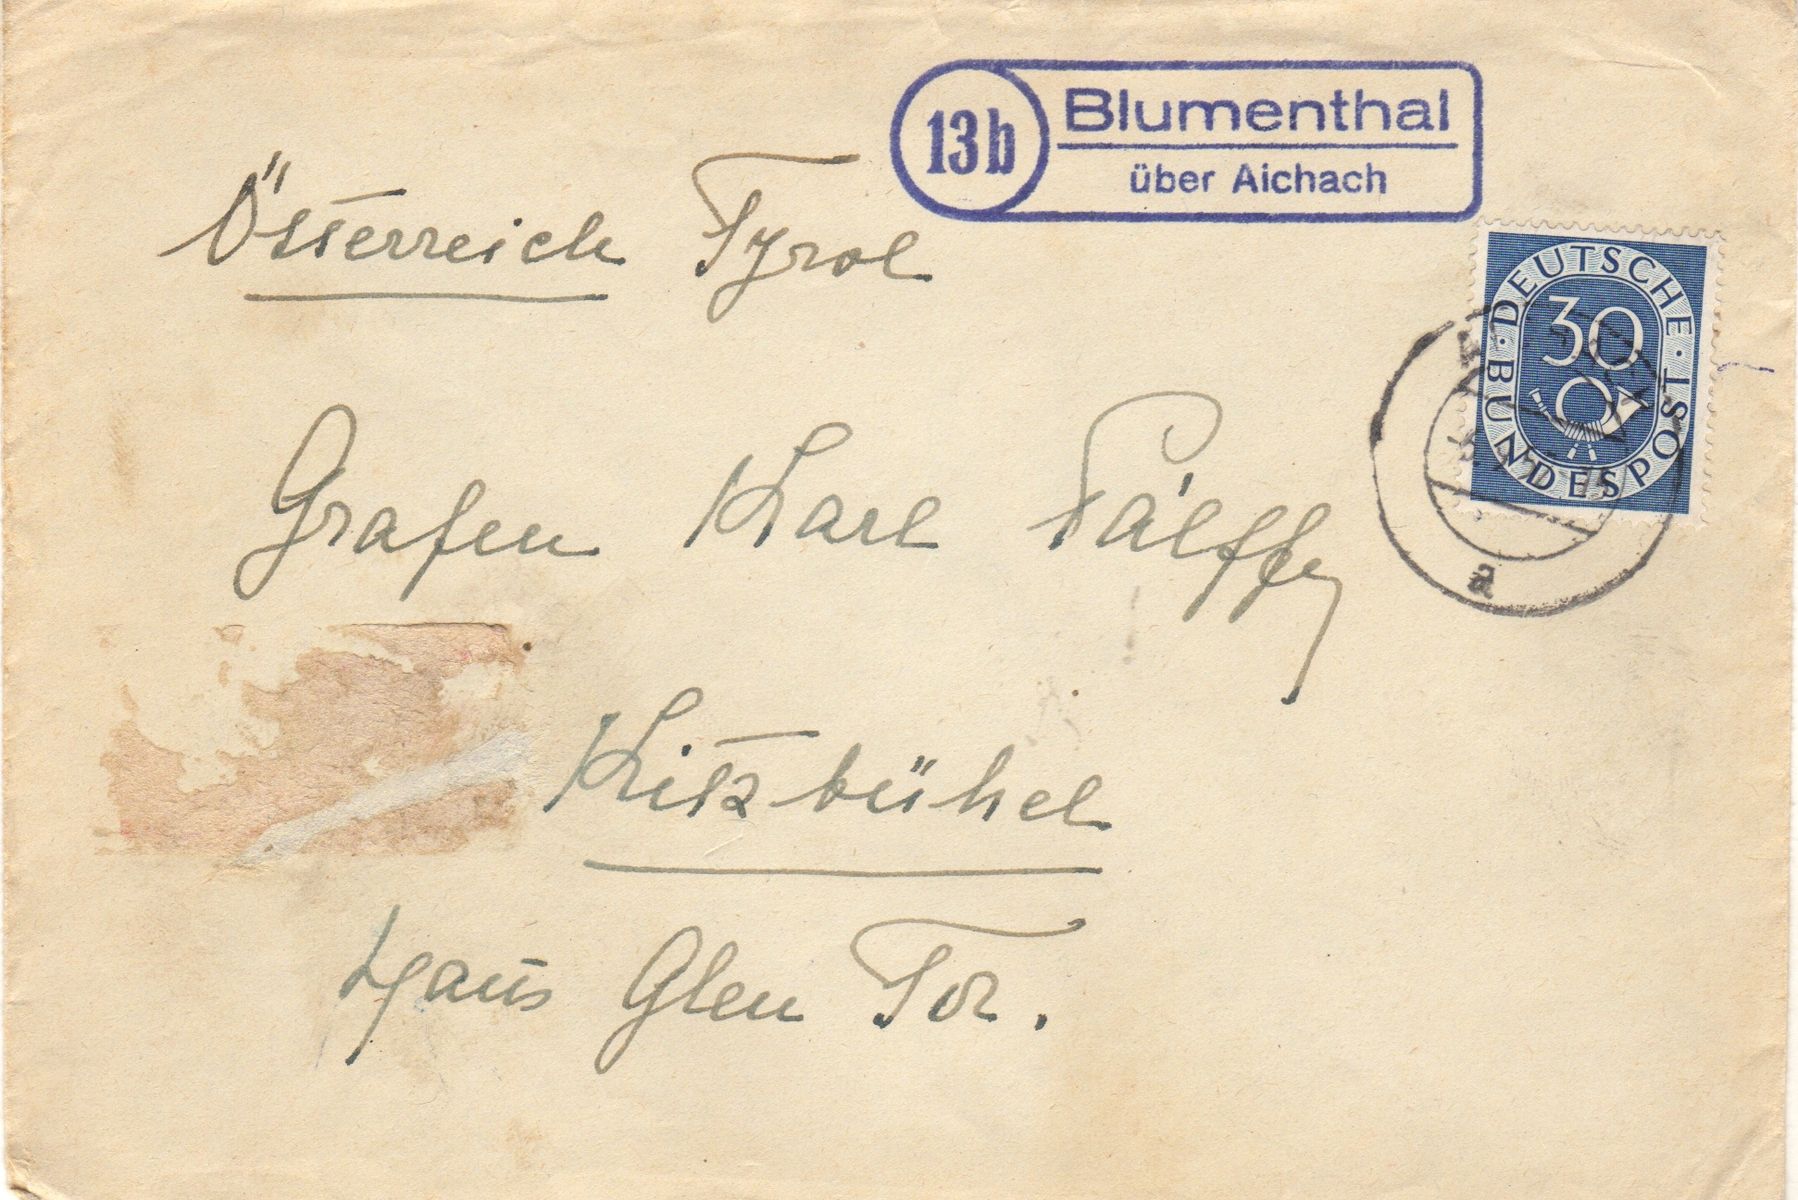 13b
Blumenthal
über Aichach
Österreich Tyrol
DEUTSCHE BUNDESPOST
30
Grafen Karl Pálffy
a
Kitzbühel
Haus Glen Tor.